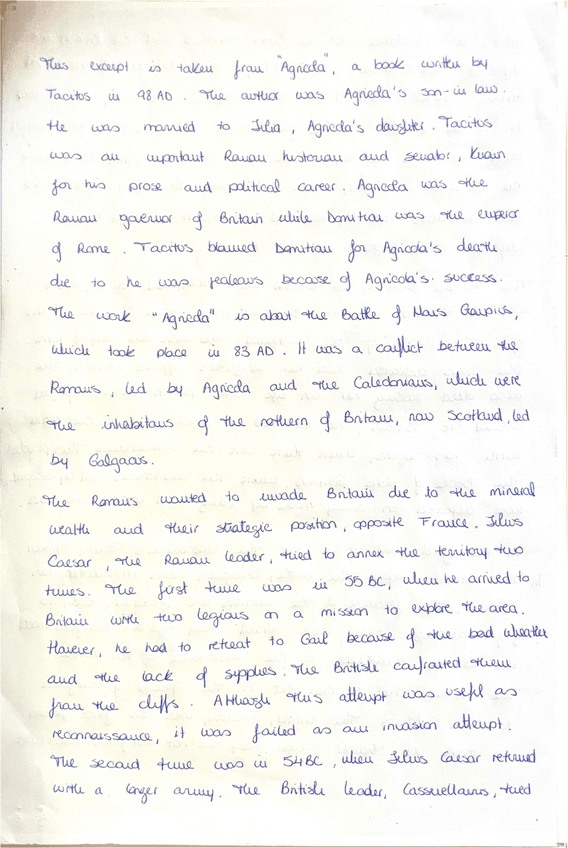 This excerpt is taken from "Agricola", a book written by
Tacitos in 98 AD. The author was Agricola's son-in law.
He was married to Julia, Agricola's daughter. Tacitus
was an important Roman historian and senator, known
for his prose and political career. Agricola was the
Roman governor of Britain while Domitian was the emperor
of Rome. Tacitus blamed Domitian for Agricola's death
due to he was jealous because of Agricola's success.
The work "Agricola" is about the Battle of Mons Graupius,
which took place in 83 AD. It was a conflict between the
Romans, led by Agricola and the Caledonians, which were
the inhabitans of the nothern of Britain, now Scotland, led
by Galgacus.
The Romans wanted to invade Britain due to the mineral
wealth and their strategic position, opposite France. Julius
Caesar, the Roman leader, tried to annex the territory two
times. The first time was in 55 BC, when he arrived to
Britain with two legions on a mission to explore the area.
However, he had to retreat to Gaul because of the bad wheather
and the lack of supplies. The British confronted them
from the cliffs. Although this attempt was useful as
reconnaissance, it was failed as an invasion attempt.
The second time was in 54 BC, when Julius Caesar returned
with a larger army. The British leader, Cassivellaunus, tried